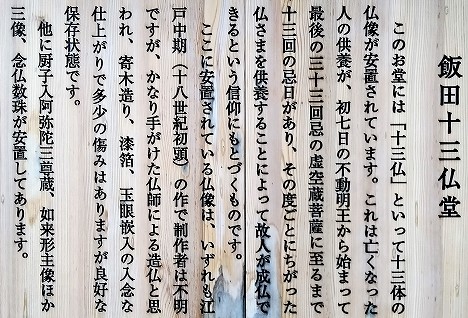 飯田十三仏堂
このお堂には「十三仏」といって十三体の
仏像が安置されています。これは亡くなった
人の供養が、初七日の不動明王から始まって
最後の三十三回忌の虚空蔵菩薩に至るまで
十三回の忌日があり、その度ごとにちがった
仏さまを供養することによって故人が成仏で
きるという信仰にもとづくものです。
ここに安置されている仏像は、いずれも江
戸中期（十八世紀初頭）の作で制作者は不明
ですが、かなり手がけた仏師による造仏と思
われ、寄木造り、漆箔、玉眼嵌入の入念な
仕上がりで多少の傷みはありますが良好な
保存状態です。
他に厨子入阿弥陀三尊蔵、如来形主像ほか
三像、念仏数珠が安置してあります。